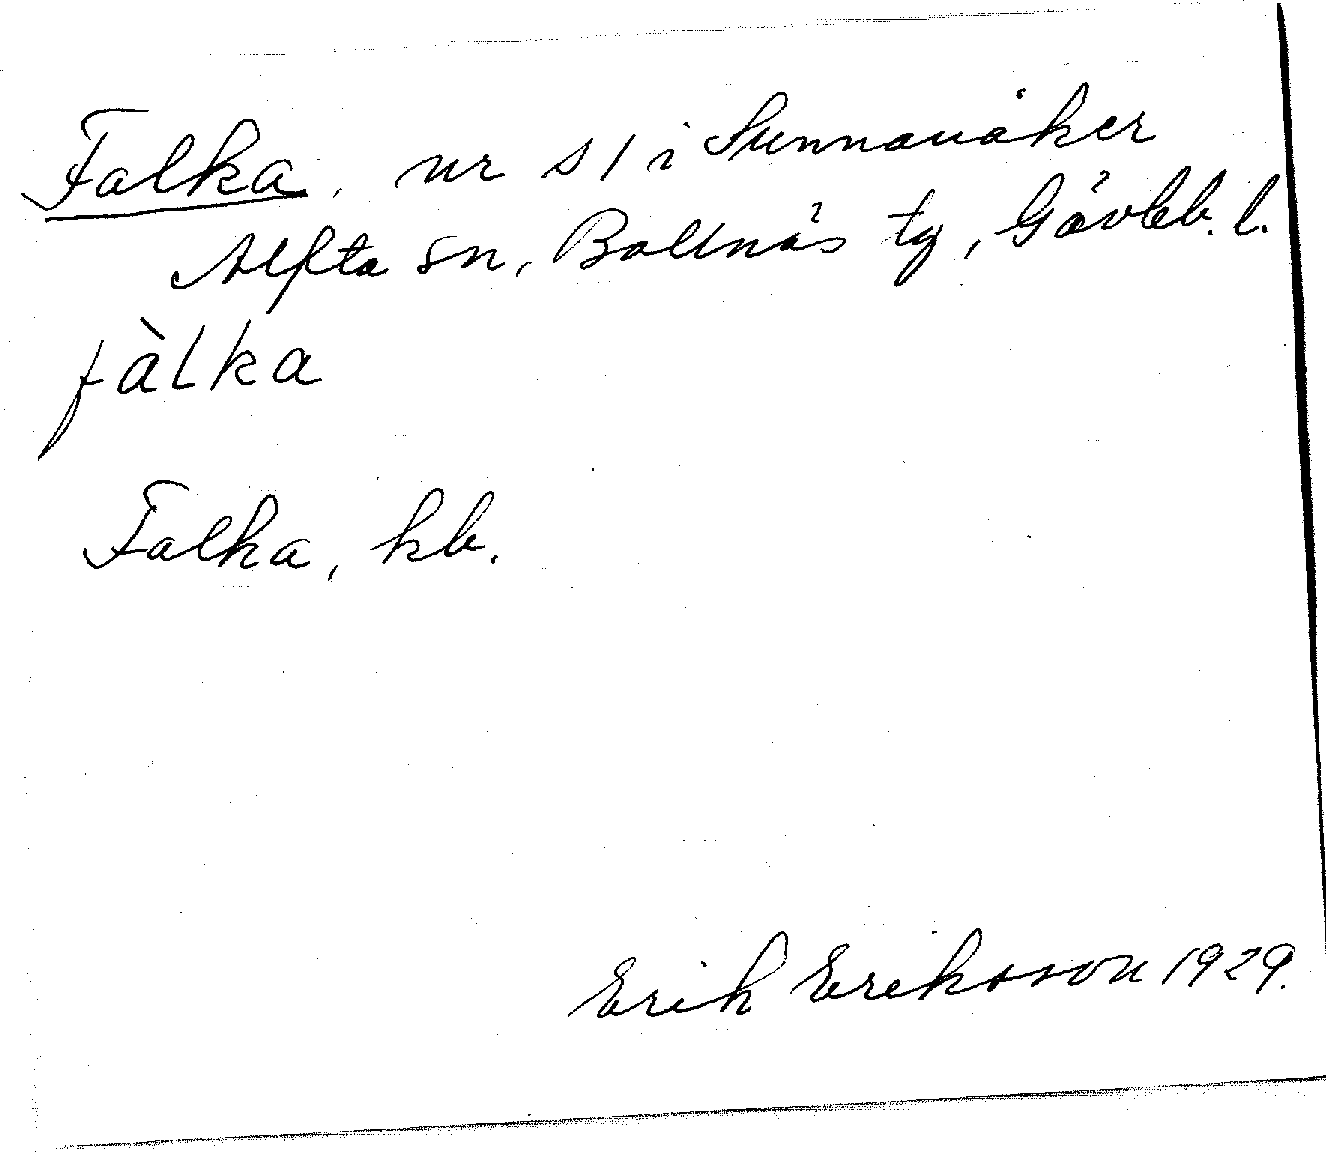 Falka, nr s 1 i Sunnanåker
Alfta sn, Bollnäs tg, Gävleb. l.
fàLka
Falka, kb.
Erik Eriksson 1929.